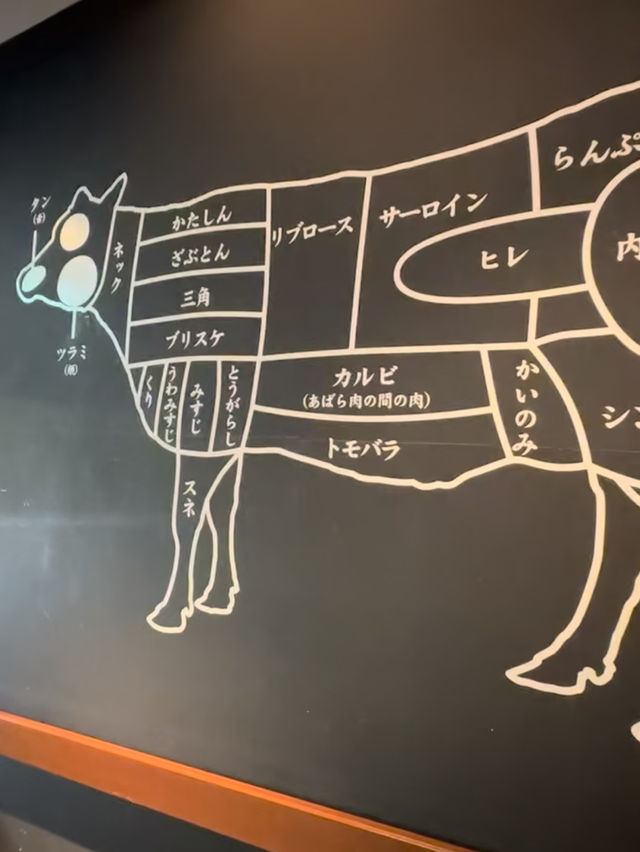 タン
(舌)
ツラミ
(頬)
ネック
かたしん
ざぶとん
三角
ブリスケ
くり
うわみすじ
みすじ
とうがらし
スネ
リブロース
サーロイン
ヒレ
カルビ
(あばら肉の間の肉)
トモバラ
かいのみ
らんぷ
内
シン